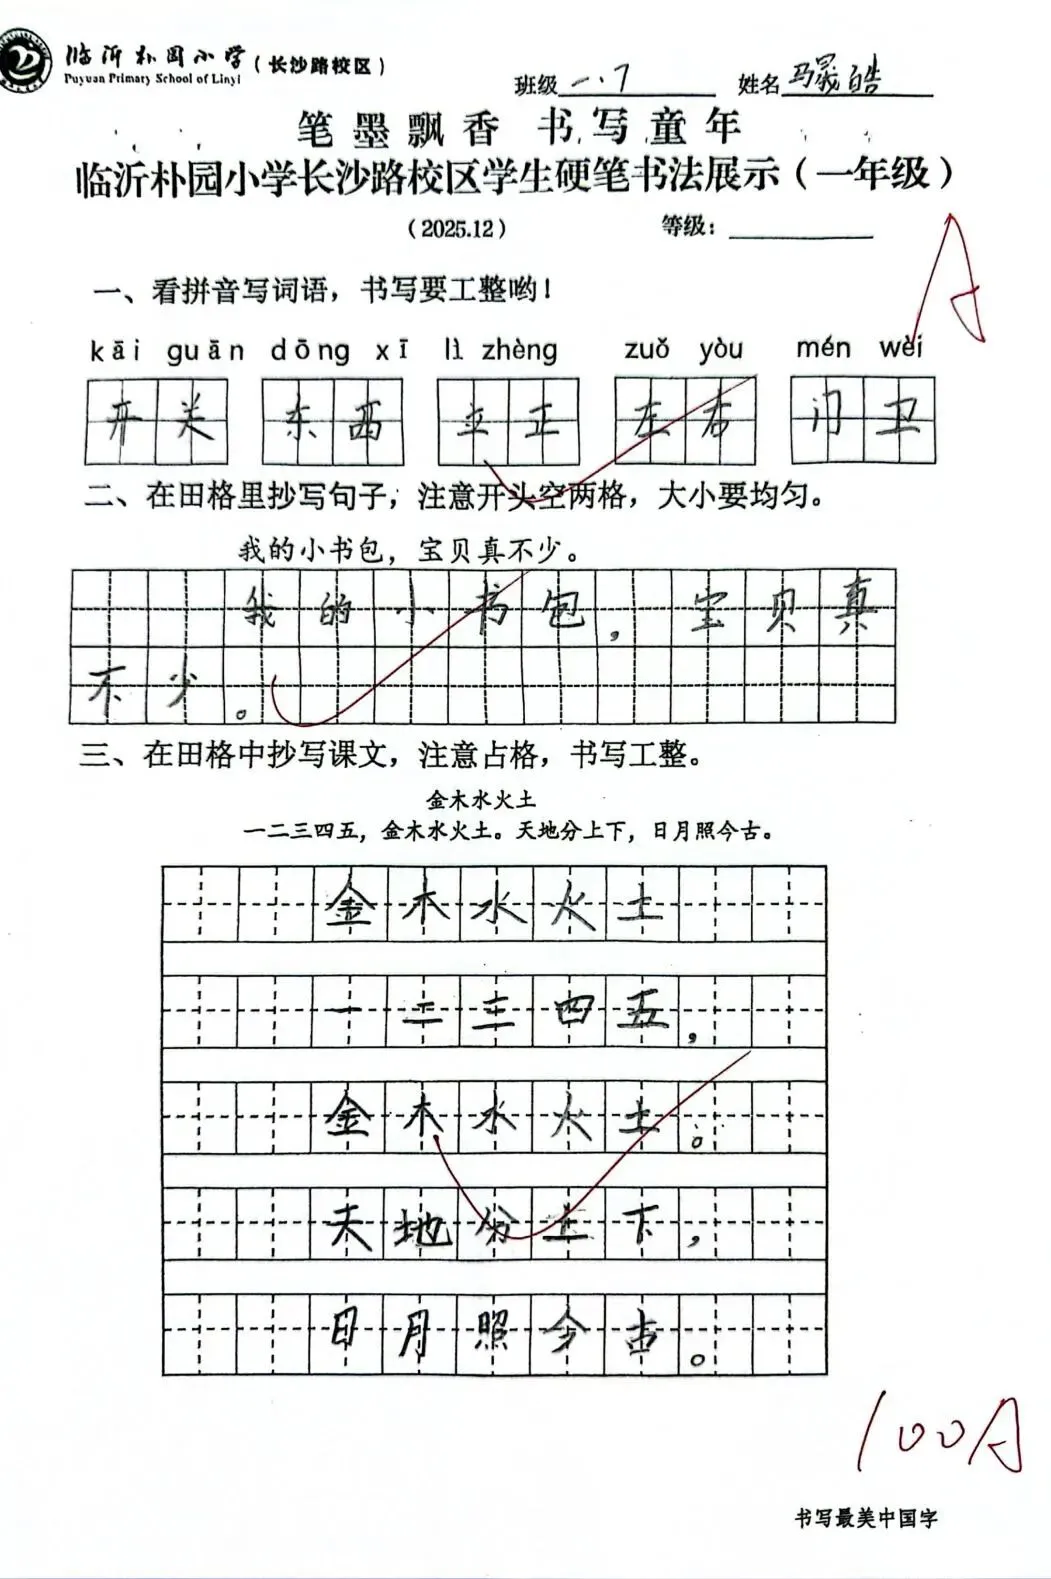 临沂朴园小学（长沙路校区）
Puyuan Primary School of Linyi
班级 一.7 姓名 马羲皓
笔墨飘香 书写童年
临沂朴园小学长沙路校区学生硬笔书法展示（一年级）
（2025.12） 等级：
A
一、看拼音写词语，书写要工整哟！
kāi guān dōng xī lì zhèng zuǒ yòu mén wèi
开关 东西 立正 左右 门卫
二、在田格里抄写句子，注意开头空两格，大小要均匀。
我的小书包，宝贝真不少。
我的小书包，宝贝真
不少。
三、在田格中抄写课文，注意占格，书写工整。
金木水火土
一二三四五，金木水火土。天地分上下，日月照今古。
金木水火土
一二三四五，
金木水火土。
天地分上下，
日月照今古。
100A
书写最美中国字